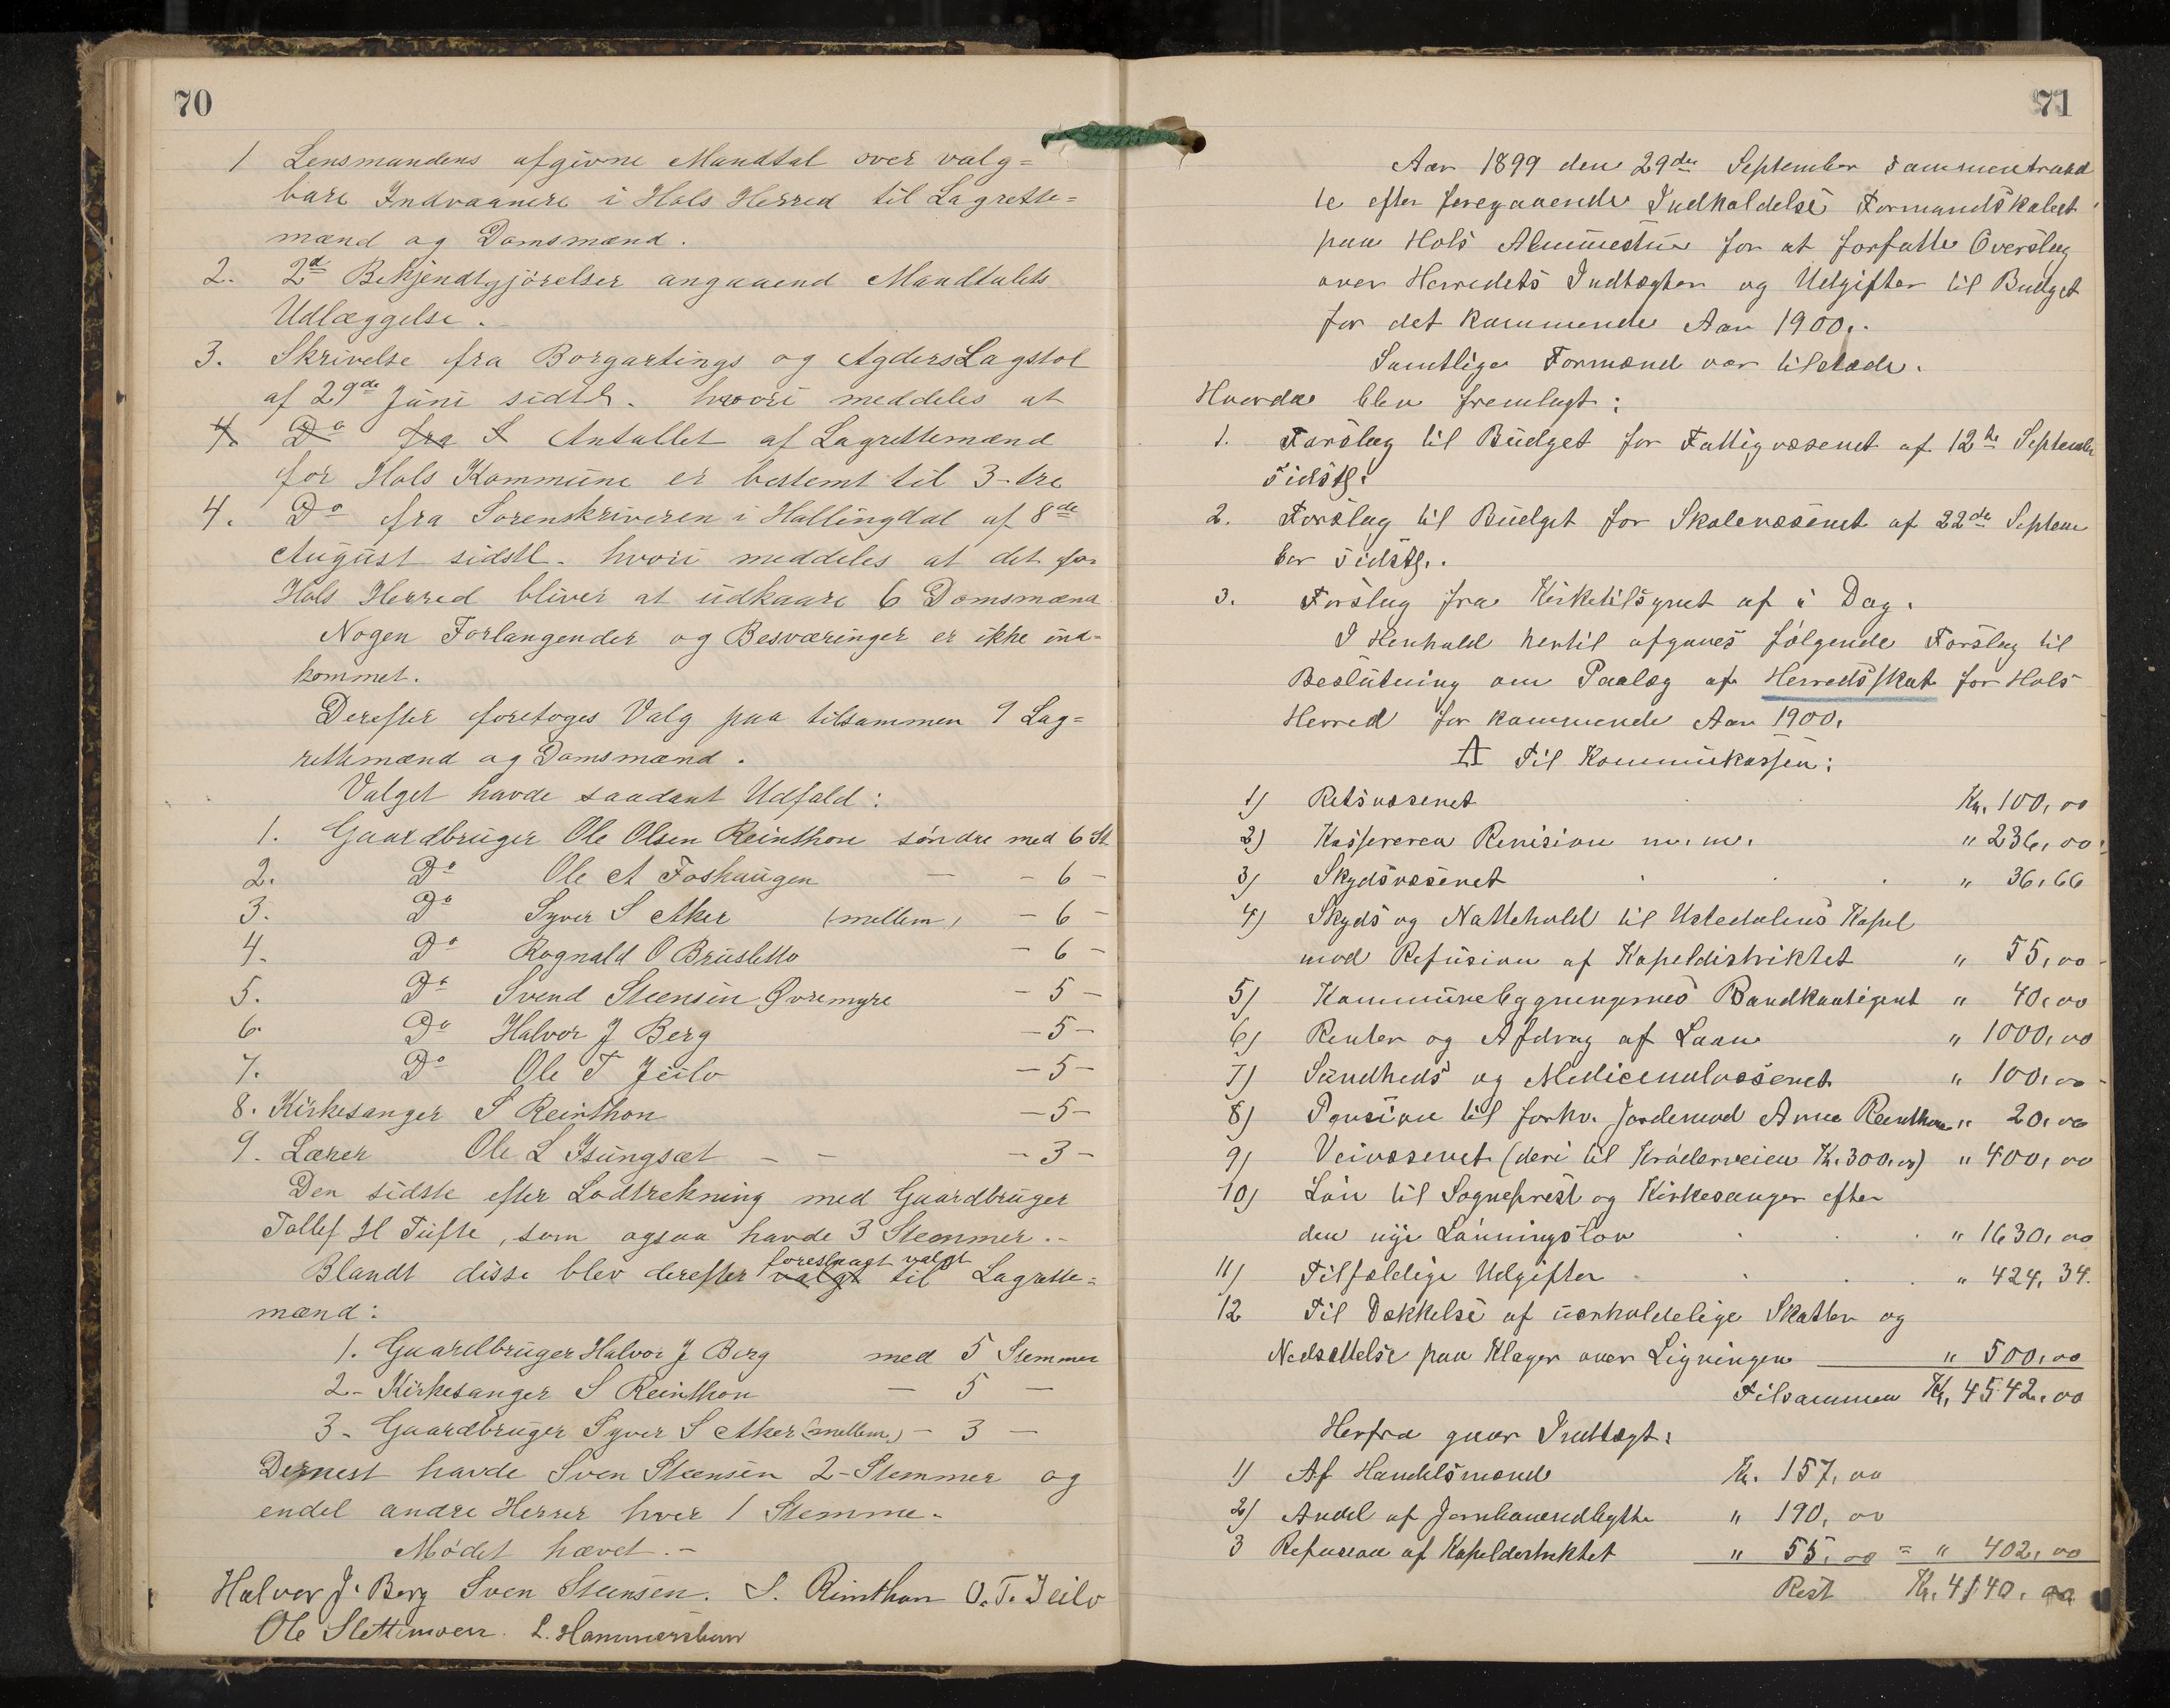 70
1 Lensmandens afgivne Mandtal over valg=
bare Indvaanere i Hols Herred til Lagrette=
mænd og Domsmænd.
2. 2d Bekjendtgjörelser angaaend Mandtalets
Udlæggelse.
3. Skrivelse fra Borgartings og Agders Lagstol
af 29de Juni sidstl. hvori meddeles at
4. Do fra S Antallet af Lagrettemænd
for Hols Kommune er bestemt til 3-tre
4. Do fra Sorenskriveren i Hallingdal af 8de
August sidstl. hvori meddeles at det for
Hols Herred bliver at udkaare 6 Domsmænd
Nogen Forlangender og Besværinger er ikke ind-
kommet.
Derefter foretoges Valg paa tilsammen 9 Lag=
rettemænd og Domsmænd.
Valget havde saadant Udfald:
1. Gaardbruger Ole Olsen Reinthon söndre med 6 St
2. Do Ole A Foshaugen — - 6 -
3. Do Syver S Aker (mellem) - 6 -
4. Do Rognald O Brusletto - 6 -
5. Do Svend Steensen Øvremyre - 5 -
6. Do Halvor J Berg - 5 -
7. Do Ole T Jeilo - 5 -
8. Kirkesanger S Reinthon - 5 -
9. Lærer Ole L Isungsæt - - - 3 -
Den sidste efter Lodtrekning med Gaardbruger
Tollef H Tufte, som ogsaa havde 3 Stemmer.-
foreslaagt valgt
Blandt disse blev derefter valgt til Lagrette=
mænd:
1. Gaardbruger Halvor J Berg med 5 Stemmer
2- Kirkesanger S Reinthon — 5 —
3- Gaardbruger Syver S Aker (mellem) - 3 —
Dernest havde Sven Steensen 2-Stemmer og
endel andre Herrer hver 1 Stemme.
Mödet hævet.-
Halvor J. Berg Sven Steensen. S. Rinthon O.T. Jeilo
Ole Slettemoen. L. Hammersbøen
71
Aar 1899 den 29de September sammentraad
te efter foregaaende Indkaldelse Formandskabet
paa Hols Almuestue for at forfatte Overslag
over Herredets Indtægter og Udgifter til Budget
for det kommende Aar 1900.
Samtlige Formænd var tilstæde.
Hvorda blev fremlagt:
1. Forslag til Budget for Fattigvæsenet af 12te September
sidstl.
2. Forslag til Budget for Skolevæsenet af 22de Septem
ber sidstl.
3. Forslag fra Kirketilsynet af i Dag.
I Henhold hertil afgaves følgende Forslag til
Beslutning om Paalæg af Herredsskat for Hols
Herred for kommende Aar 1900.
A Til Kommunekassen:
1) Retsvæsenet Kr. 100,00
2) Kassereren Revision m. m. " 236,00
3) Skydsvæsenet " 36,66
4) Skyds og Nattehold til Ustedalens Kapel
mod Refusion af Kapeldistriktet " 55,00
5) Kommunebygningernes Brandkontigent " 40,00
6) Renter og Afdrag af Laan " 1000,00
7) Sundheds og Medicinalvæsenet " 100,00
8) Pension til forhv. Jordemod Anne Reinthon " 20,00
9) Veivæsenet (deri til Kröderveien Kr. 300,00) " 400,00
10) Lön til Sogneprest og Kirkesanger efter
den nye Lönningslov " 1630,00
11) Tilfældige Udgifter " 424,34.
12 Til Dækkelse af uerholdelige Skatter og
Nedsættelse paa Klager over Ligningen " 500,00
Tilsammen Kr. 4542,00
Herfra gaar Indtægt:
1) Af Handelsmænd Kr. 157,00
2) Andel af Jernbaneudbytte " 190,00
3 Refusion af Kapeldistriktet " 55,00 = " 402,00
Rest Kr. 4140,00